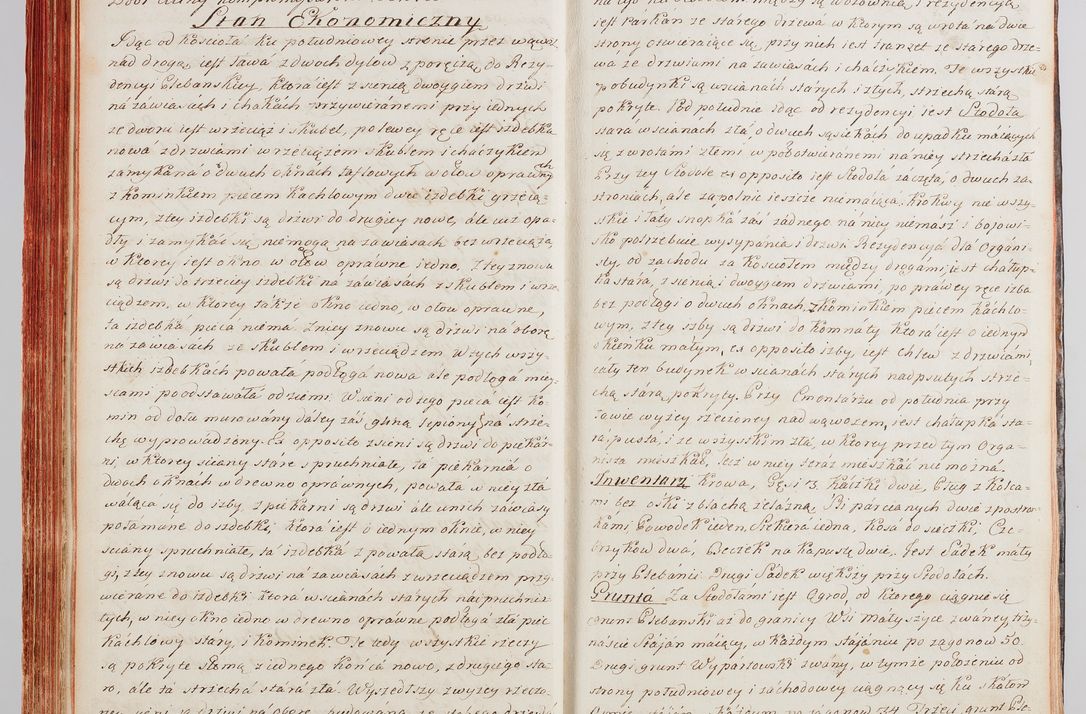 Stan Ekonomiczny
Idąc od Kościoła ku południowey stronie przez wąwoz
nad drogą iest ława z dwoch dylow z poręczą, do Rezy-
dencyi Plebanskiey, ktora iest z sienią dwoygiem drzwi
na zawiasach i chakach przywieranemi przy iednych
ze dworu iest wrzeciąż i skubel, po lewey ręce iest izdebka
nowa z drzwiami wrzeciążem skublem i haczykiem
zamykana o dwuch oknach taflowych w ołow oprawnych
z kominkiem piecem kachlowym dwie izdebki grzeią-
cym, z tey izdebki są drzwi do drugiey nowe, ale iuż opa-
dły i zamykać się niemogą na zawiasach bez wrzeciąża,
w ktorey iest okno w ołow oprawne iedno. Z tey znowu
są drzwi do trzeciey izdebki na zawiasach z skublem i wrze-
ciądzem, w ktorey także okno iedno, w ołow oprawne,
ta izdebka pieca niema. Z niey znowu są drzwi na oborę
na zawiasach ze skublem i wrzeciądzem. W tych wszy-
stkich izdebkach powała podłoga nowa ale podłoga miey-
scami poodstawała od ziemi. W sieni od tego pieca iest ko-
min od dołu murowany daley zaś gliną lepiony na strze-
chę wyprowadzony. Ex opposito z sieni są drzwi do piekar-
ni, w ktorey sciany stare spruchniałe, ta piekarnia o
dwoch oknach w drewno oprawnych, powała w niey zła
waląca się do izby z piekarni są drzwi ale u nich zawiasy
połamane do izdebki, ktora iest o iednym oknie, w niey
sciany spruchniałe, ta izdebka z powałą starą bez podło-
gi, z tey znowu są drzwi na zawiasach z wrzeciądzem przy-
wierane do izdebki ktora w scianach starych nad pruchnia-
łych, w niey okno iedno w drewno oprawne podłoga zła piec
kachlowy stary, i kominek. Te tedy wszystkie rzeczy
są pokryte słomą z iednego końca nowo, z drugiego sta-
ro, ale ta strzecha stara zła. Wyszedszy z wyzey rzeczo-
iest Parkan ze starego drzewa w ktorym są wrota na dwie
strony otwieraiące się, przy nich iest tranzet ze starego drze-
wa ze drzwiami na zawiasach i haczykiem. Te wszystkie
pobudynki są w scianach starych i złych, strzechą starą
pokryte. Pod południe idąc od rezydencyi iest Stodoła
stara w scianach zła, o dwuch sąsiekach do upadku maiących
się z wrotami złemi w poł otwieranemi na niey strzecha zła
Przy tey Stodole ex opposito iest Stodoła zaczęta, o dwuch za-
stroniach, ale zapolnic ieszcze niemaiąca. Krokwy nie wszy-
skie i łaty snopka zaś żadnego na niey niemasz i bojowi-
sko potrzebuie wysypania i drzwi. Rezydencya dla Organi-
sty, od zachodu za Kościołem między drogami iest chałup-
ka stara, z sienią i dwoygiem drzwiami, po prawey ręce izba
bez podłogi o dwuch oknach z kominkiem piecem kachlo-
wym, z tey izby są drzwi do komnaty ktora iest o iednym
okienku małym, ex opposito izby, iest chlew z drzwiami
cały ten budynek w scianach starych nadpsutych strze-
chą starą pokryty. Przy Cmentarzu od południa przy
ławie wyzey rzeczoney nad wąwozem, iest chałupka sta-
ra, pusta, i ze wszystkim zła, w ktorey przed tym Orga-
nista mieszkał, lecz w niey teraz mieszkać nie można.
Inwentarz Krowa, Gęsi 3, Kaczki dwie, Pług z Kolca-
mi bez ośki z blachą żelazną. Bi parcianych dwie z postron-
kami Powodek ieden, Siekiera iedna, Kosa do sieczki, Cze-
trzykow dwa, Beczek na kapustę dwie. Jest Sadek mały
przy Plebanii Drugi Sadek większy przy Stodołach.
Grunta Za Stodołami iest Ogrod, od ktorego ciągnie się
grunt Plebanski aż do granicy Wsi Małyszyce zwaney trzy-
naście Staian maiący, w każdym staianiu po zagonow 50.
Drugi grunt Wyparłowski zwany, w tymże położeniu od
strony południowey i zachodowey ciągnący się ku skałom